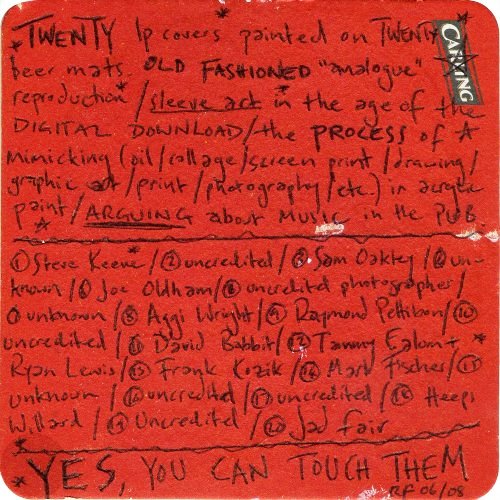 *TWENTY lp covers painted on TWENTY
beer mats. OLD FASHIONED "analogue"
CARVING
reproduction*/sleeve art in the age of the
DIGITAL DOWNLOAD/the PROCESS of
mimicking (oil/collage/screen print/drawing/
graphic art/print/photography/etc.) in acrylic
paint/ARGUING about MUSIC in the PUB
① Steve Keene*/② uncredited/③ Sam Oakley/④ un-
known/⑤ Joe Oldham/⑥ uncredited photographer/
⑦ unknown/⑧ Aggi Wright/⑨ Raymond Pettibon/⑩
uncredited/⑪ David Babbit/⑫ Tammy Ealom +
Ryan Lewis/⑬ Frank Kozik/⑭ Mark Fischer/⑮
unknown/⑯ uncredited/⑰ uncredited/⑱ Heepi
Willard/⑲ Uncredited/⑳ Jad Fair
*YES, YOU CAN TOUCH THEM
RF 06/08